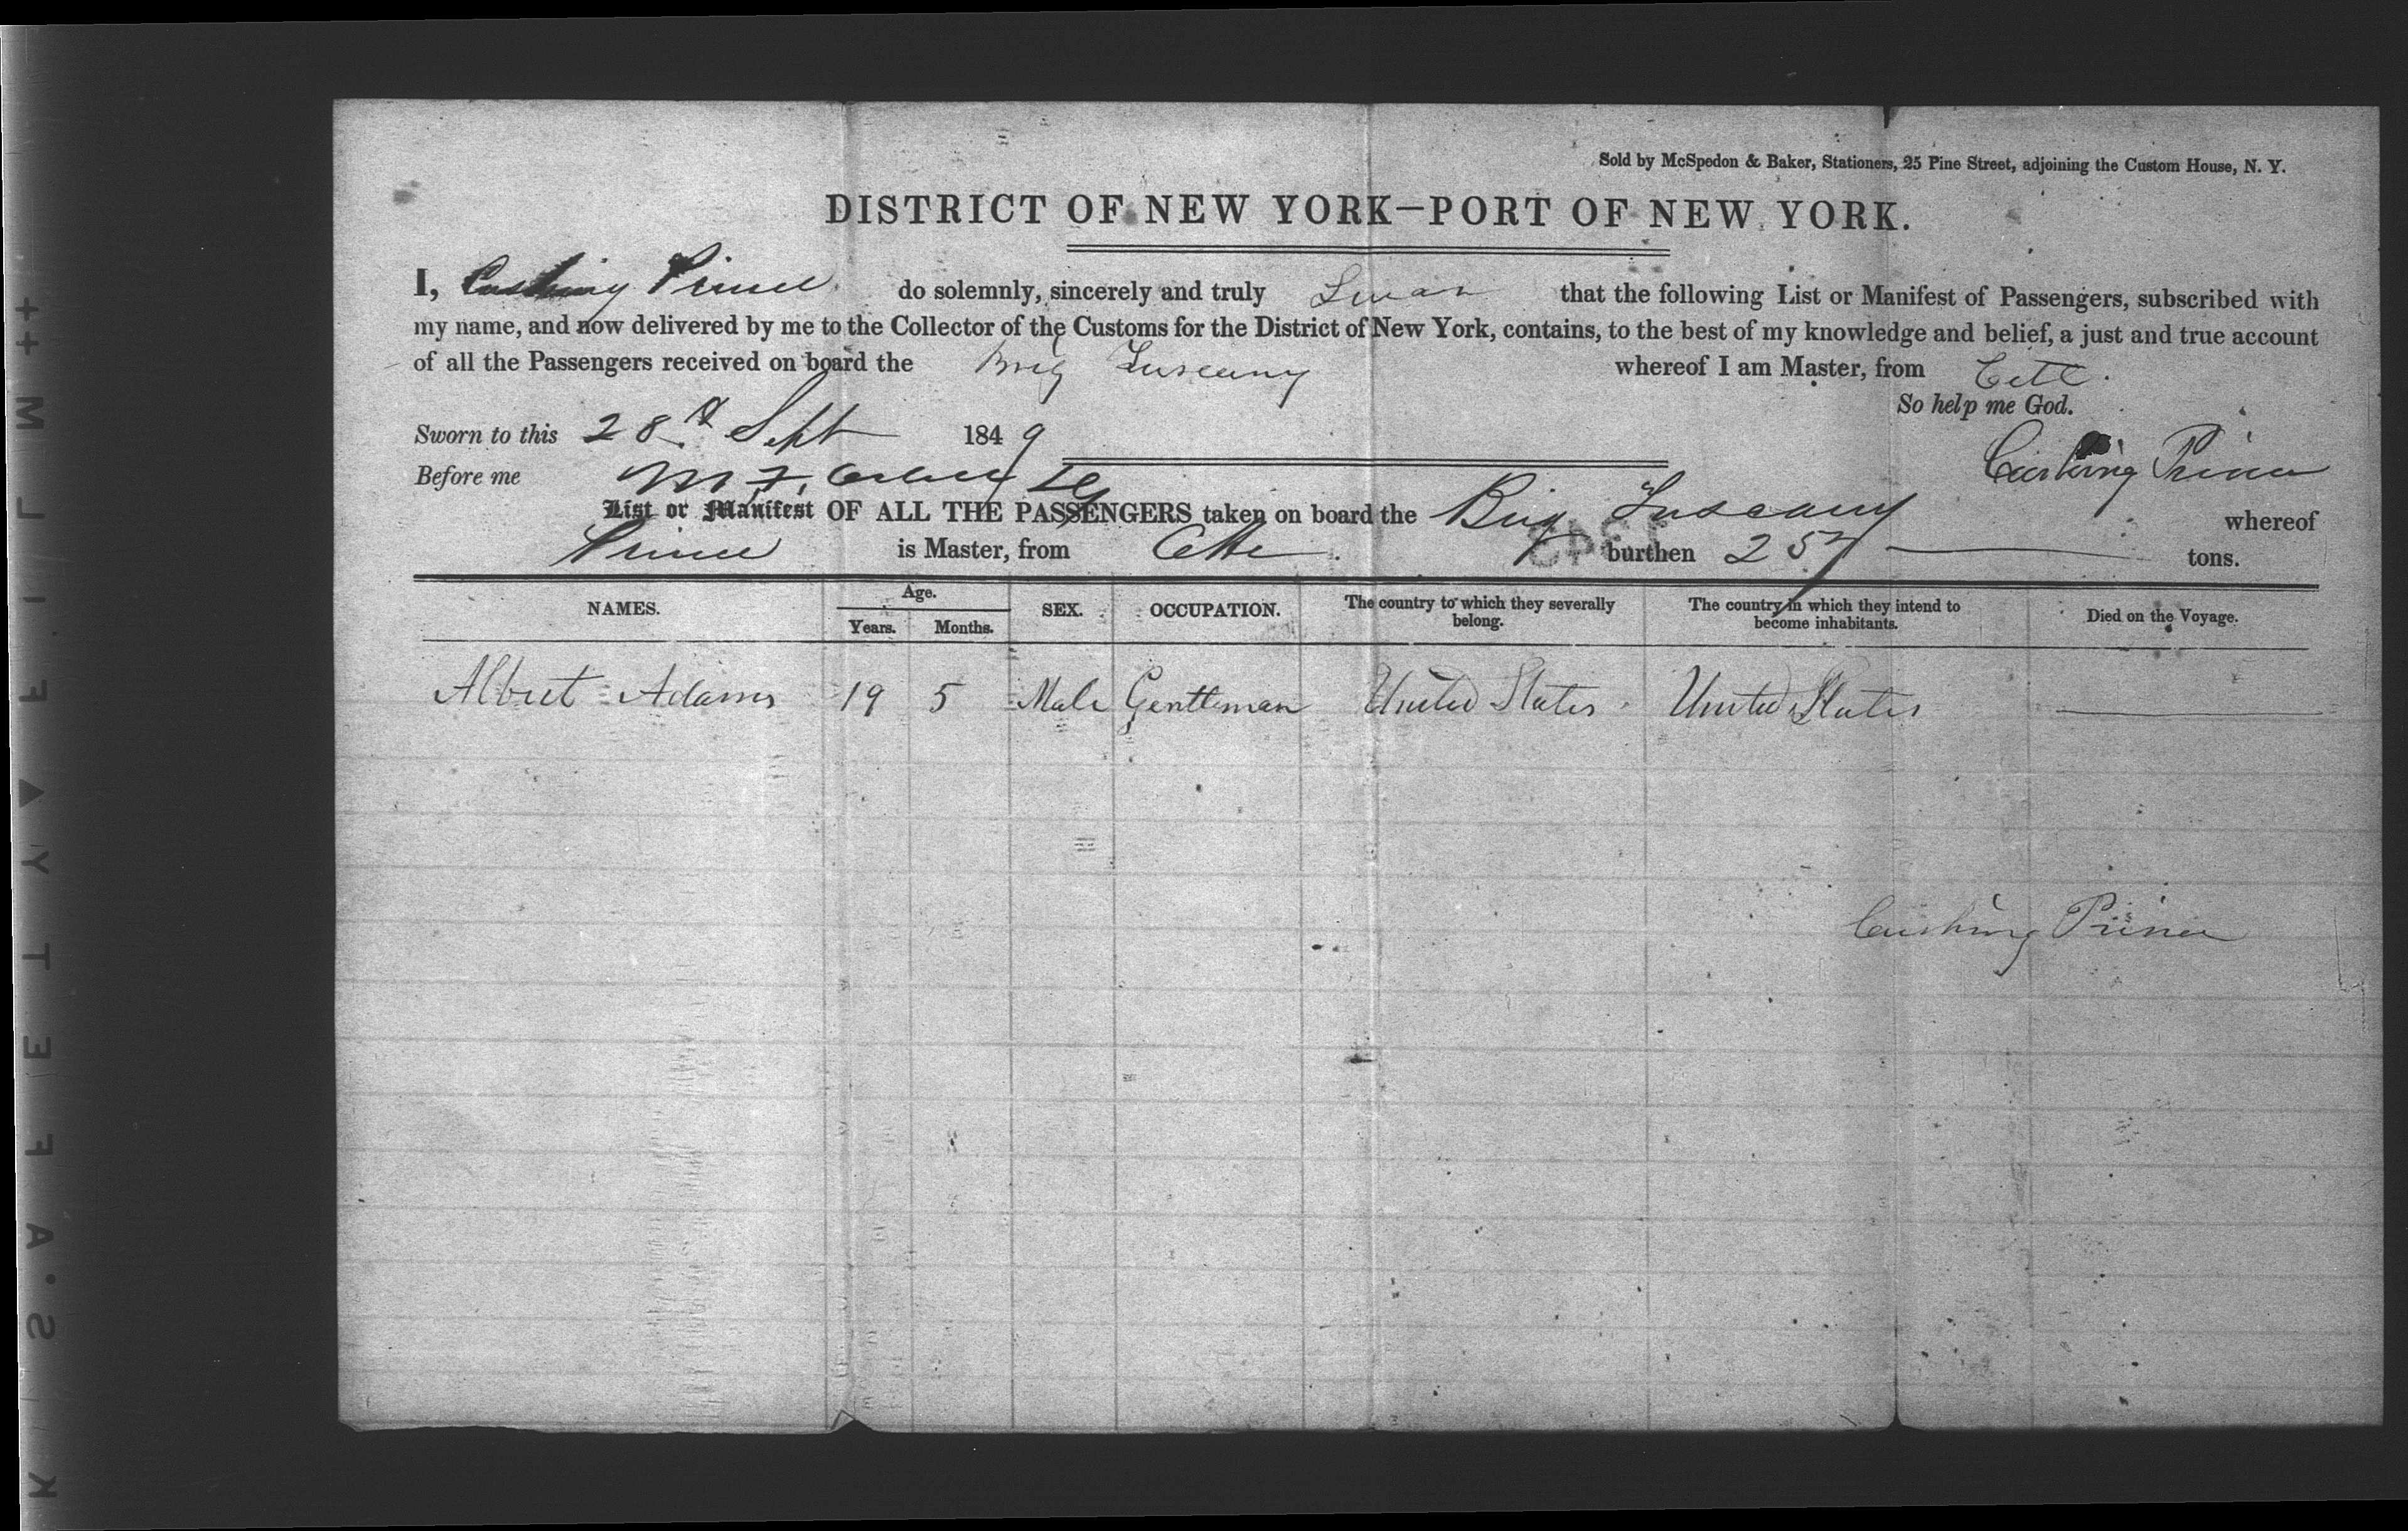 Sold by McSpedon & Baker, Stationers, 25 Pine Street, adjoining the Custom House, N. Y.
DISTRICT OF NEW YORK—PORT OF NEW YORK.
I, Cushing Prince do solemnly, sincerely and truly Swear that the following List or Manifest of Passengers, subscribed with
my name, and now delivered by me to the Collector of the Customs for the District of New York, contains, to the best of my knowledge and belief, a just and true account
of all the Passengers received on board the Brig Tuscany whereof I am Master, from Cette.
So help me God.
Sworn to this 28th Sept 1849
Cushing Prince
Before me
List or Manifest OF ALL THE PASSENGERS taken on board the Brig Tuscany whereof
Prince is Master, from Cette. burthen 257 tons.
NAMES. Age. Years. Months. SEX. OCCUPATION. The country to which they severally belong. The country in which they intend to become inhabitants. Died on the Voyage.
Albert Adams 19 5 Male Gentleman United States United States
Cushing Prince